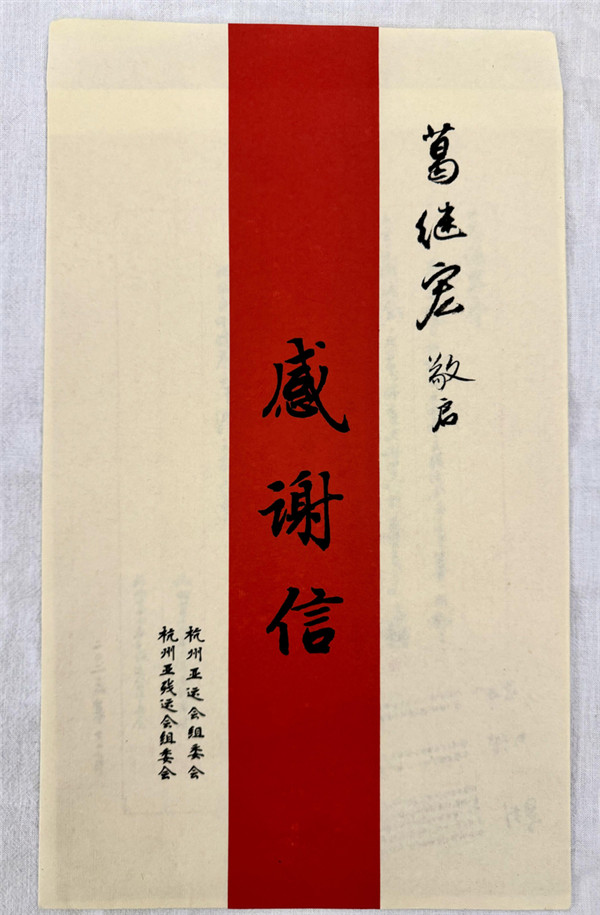 葛继宏 敬启
感谢信
杭州亚运会组委会
杭州亚残运会组委会